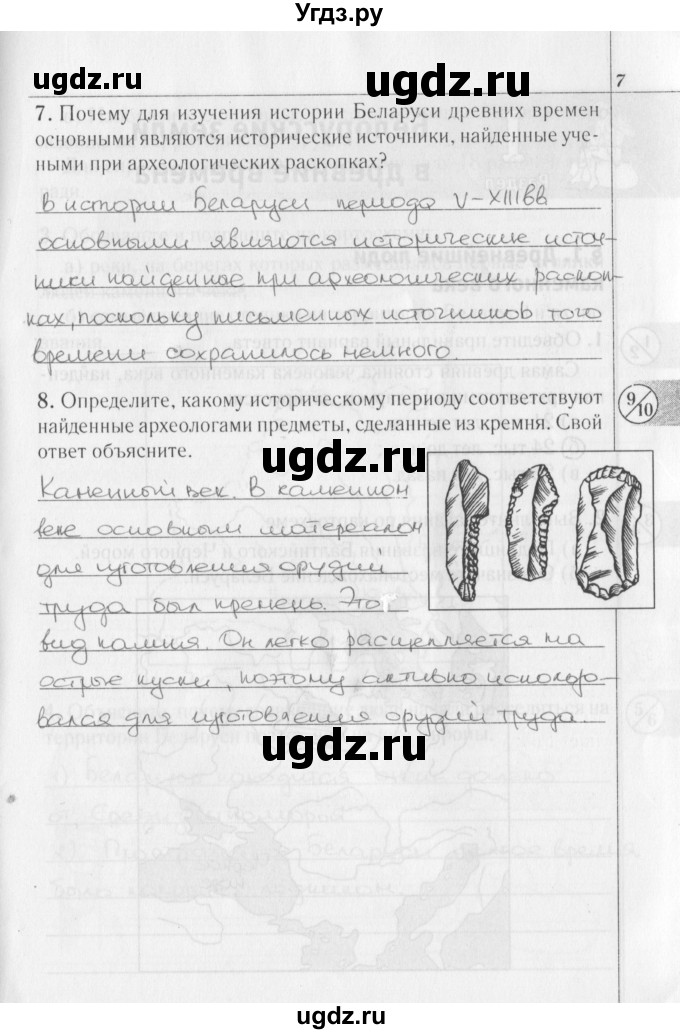 Угдз.ру
ugdz.ru
ugdz.ru
7
7. Почему для изучения истории Беларуси древних времен
основными являются исторические источники, найденные уче-
ными при археологических раскопках?
В истории Беларуси периода V-XIIIвв
основными являются исторические источ-
ники найденное при археологических раскоп-
ках, поскольку письменных источников того
времени сохранилось немного.
8. Определите, какому историческому периоду соответствуют
найденные археологами предметы, сделанные из кремня. Свой
ответ объясните.
9/10
ugdz.ru
Каменный век. В каменном
веке основным материалом
для изготовления орудий
труда был кремень. Это
вид камния. Он легко расщепляется на
острые куски, поэтому активно использо-
вался для изготовления орудий труда.
ugdz.ru
ugdz.ru